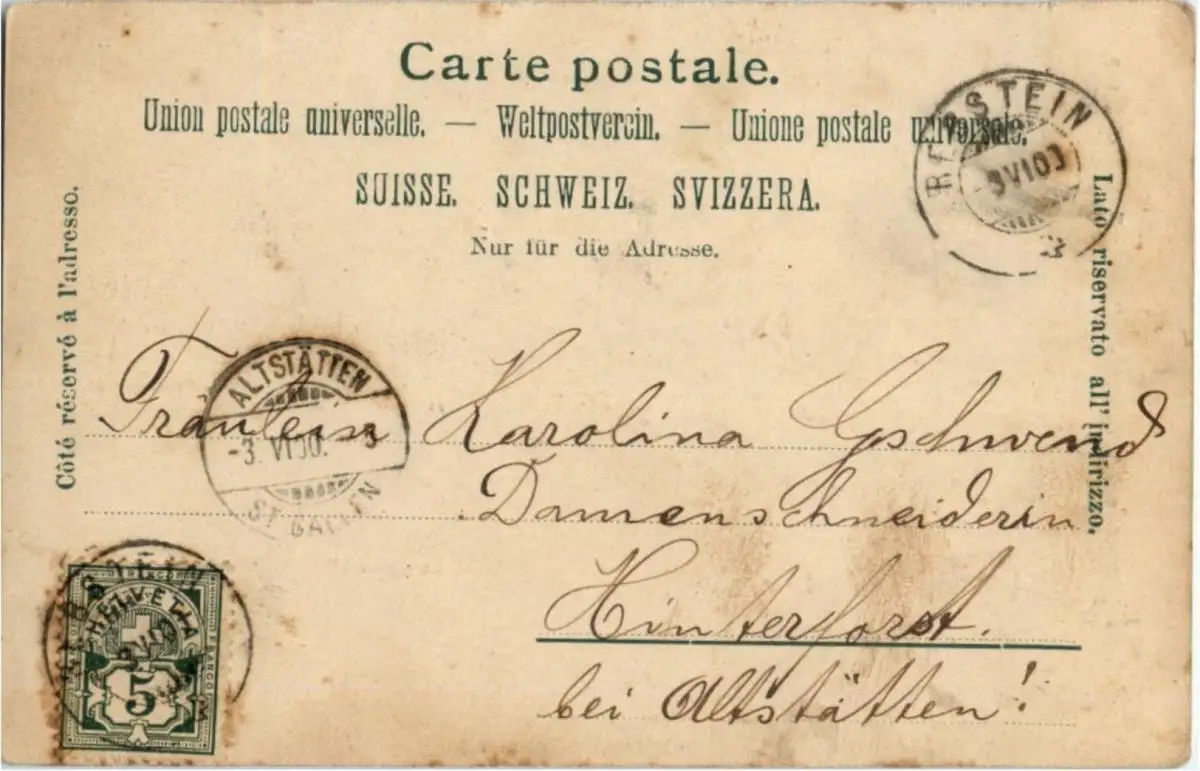 Carte postale.
Union postale universelle. — Weltpostverein. — Unione postale universale.
SUISSE. SCHWEIZ. SVIZZERA.
Nur für die Adresse.
Côté réservé à l'adresso.
Lato riservato all' indirizzo.
REBSTEIN
3 VI 00
3
ALTSTÄTTEN
-3. VI 00. 3
ST. GALLEN
Fräulein Karolina Gschwend
Damenschneiderin
Hinterforst.
bei Altstätten!
REBSTEIN
HELVETIA
5